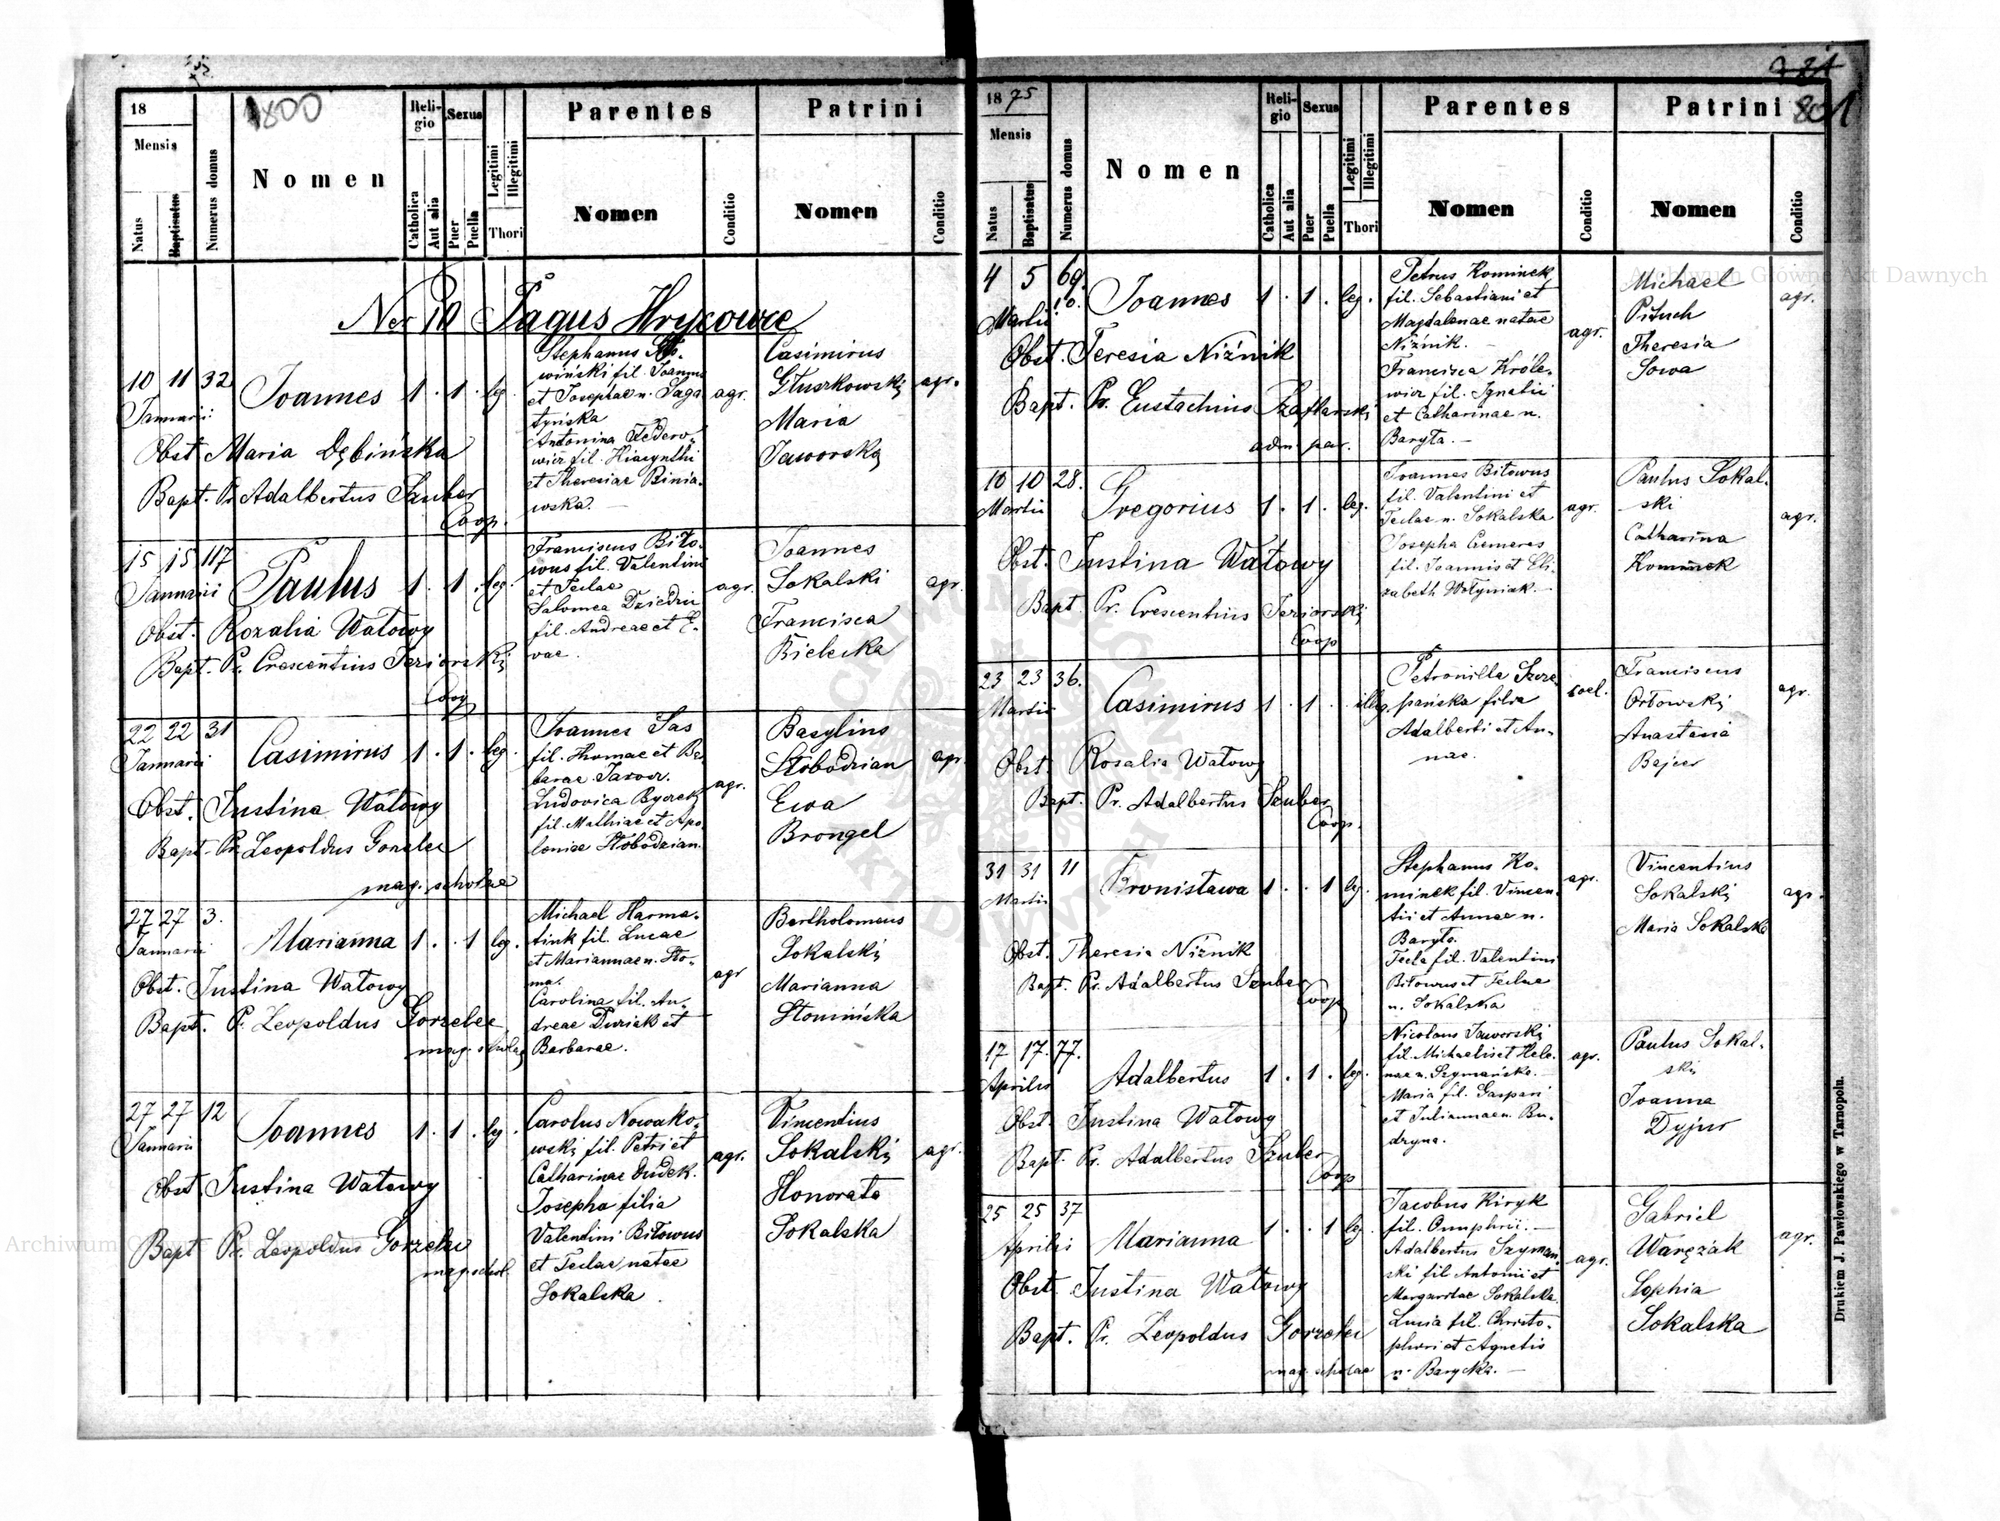 1800
18
Mensis
Natus
Baptisatus
Numerus domus
Nomen
Religio
Catholica
Aut alia
Sexus
Puer
Puella
Legitimi
Illegitimi
Thori
Parentes
Nomen
Conditio
Patrini
Nomen
Conditio
Ner 10 Pagus Hrycowce
10 11 32
Januarii
Joannes 1 . 1 . leg.
Obst. Maria Dębińska
Bapt. Pr. Adalbertus Szuber
Coop.
Stephanus
wiński fil. Joannis
et Josephae n. Saga
tyńska
Antonina Fedoro-
wicz fil. Hiacynthi
et Theresiae Binia-
wska.
agr.
Casimirus
Głuszkowski
Maria
Jaworska
agr.
15 15 117
Januarii
Paulus 1 . 1 . leg.
Obst. Rozalia Watowy
Bapt. Pr. Crescentius Jeziorski
Coop
Franciscus Bito-
wus fil. Valentini
et Teclae
Salomea Dziedzic
fil. Andreae et E-
vae.
agr.
Joannes
Sokalski
Francisca
Bielecka
agr.
22 22 31
Januarii
Casimirus 1 . 1 . leg.
Obst. Justina Watowy
Bapt. Pr. Leopoldus Gorzelec
mag. scholae
Joannes Sas
fil. Thomae et Bar
barae
Ludovica
fil. Mathiae et Apo
loniae Słobodzian.
agr.
Basylius
Słobodzian
Ewa
Brongel
agr.
27 27 3.
Januarii
Marianna 1 . . 1 leg.
Obst. Justina Watowy
Bapt. Pr. Leopoldus Gorzelec
mag. scholae
Michael Harma-
tiuk fil. Lucae
et Mariannae n. Sło-
ma.
Carolina fil. An-
dreae Duriak et
Barbarae.
agr
Bartholomeus
Sokalski
Marianna
Słonińska
27 27 12
Januarii
Joannes 1 . 1 . leg.
Obst. Justina Watowy
Bapt Pr. Leopoldus Gorzelec
mag. schol.
Carolus Nowako-
wski fil. Petri et
Catharinae Dudek.
Josepha filia
Valentini Bitowus
et Teclae natae
Sokalska.
agr.
Vincentius
Sokalski
Honorata
Sokalska
agr.
801
18 75
Mensis
Natus
Baptisatus
Numerus domus
Nomen
Religio
Catholica
Aut alia
Sexus
Puer
Puella
Legitimi
Illegitimi
Thori
Parentes
Nomen
Conditio
Patrini
Nomen
Conditio
4 5 69.
Martii
Joannes 1 . 1 . leg.
Obst. Teresia Niżnik
Bapt. Pr. Eustachius Szaflarski
adm. par.
Petrus Kominek
fil. Sebastiani et
Magdalenae natae
Niżnik.
Francisca Króle-
wicz fil. Ignatii
et Catharinae n.
Baryta.
agr.
Michael
Pituch
Theresia
Sowa
agr.
10 10 28.
Martii
Gregorius 1 . 1 . leg.
Obst. Justina Watowy
Bapt. Pr. Crescentius Jeziorski
Coop
Joannes Bitowus
fil. Valentini et
Teclae n. Sokalska
Josepha Czemeres
fil. Joannis et Eli-
zabeth Wołyniak.
agr.
Paulus Sokal-
ski
Catharina
Kominek
agr.
23 23 36.
Martii
Casimirus 1 . 1 . . illeg.
Obst. Rosalia Watowy
Bapt. Pr. Adalbertus Szuber
Coop.
Petronilla Szcze
pańska filia
Adalberti et An-
nae.
coel.
Franciscus
Orłowski
Anastasia
Bajcer
agr.
31 31 11
Martii
Bronisława 1 . . 1 leg.
Obst. Theresia Niżnik
Bapt. Pr. Adalbertus Szuber
Coop
Stephanus Ko-
minek fil. Vincen-
tii et Annae n.
Baryta.
Tecla fil. Valentini
Bitowus et Teclae
n. Sokalska
agr.
Vincentius
Sokalski
Maria Sokalska
agr.
17 17. 77.
Aprilis
Adalbertus 1 . 1 . leg.
Obst. Justina Watowy
Bapt. Pr. Adalbertus Szuber
Coop
Nicolaus Jaworski
fil. Michaelis et Hele-
nae n. Szymańska.
Maria fil. Gaspari
et Juliannae n. Bu-
dzyna.
agr.
Paulus Sokal-
ski
Joanna
Dyjur
25 25 37
Aprilis
Marianna 1 . . 1 leg.
Obst. Justina Watowy
Bapt. Pr. Leopoldus Gorzelec
mag. scholae
Jacobus Kiryk
fil. Onuphrii.
Adalbertus Szyman-
ski fil Antonii et
Margaritae Sokalska.
Lucia fil. Christo-
phori et Agnetis
n. Barycka.
agr.
Gabriel
Warężak
Sophia
Sokalska
agr.
Drukiem J. Pawłowskiego w Tarnopolu.
Archiwum Główne Akt Dawnych
Archiwum Główne Akt Dawnych